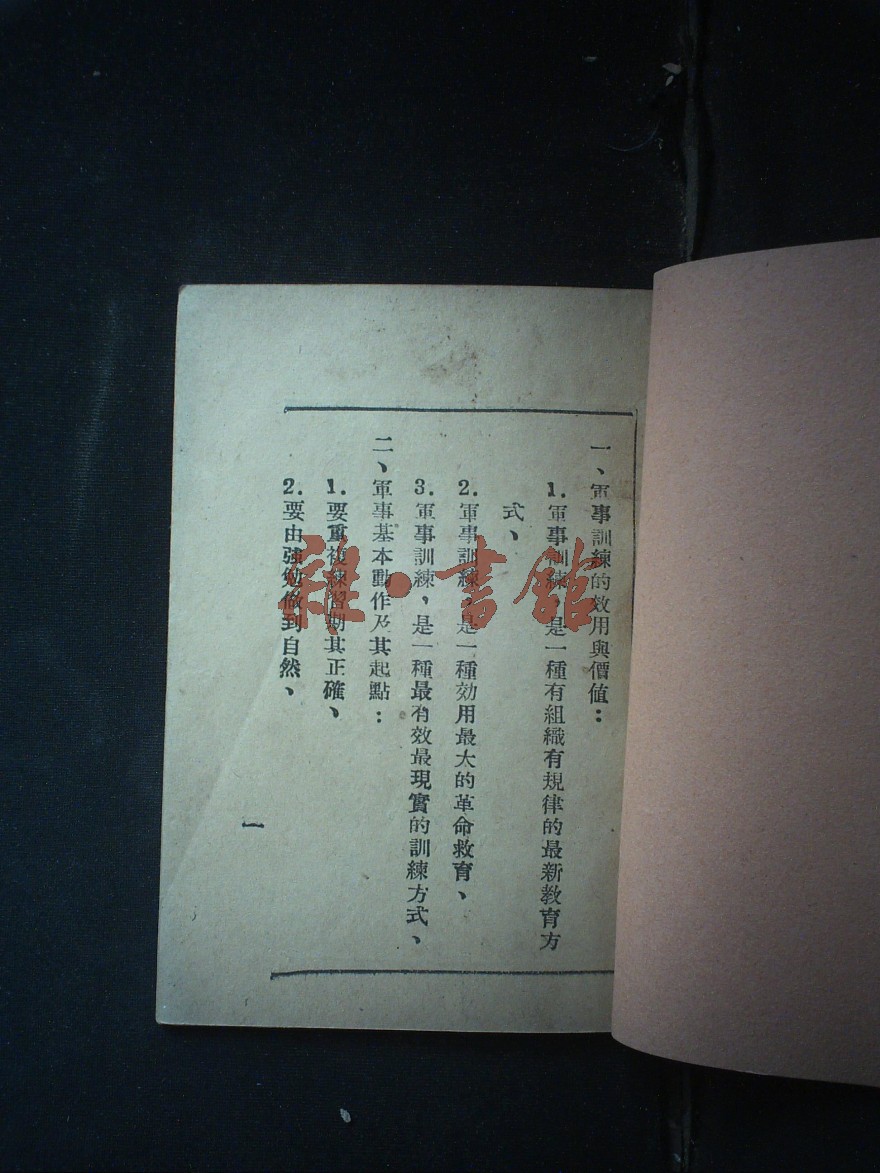 一、軍事訓練的效用與價值：
1.軍事訓練，是一種有組織有規律的最新教育方
式、
2.軍事訓練，是一種効用最大的革命教育、
3.軍事訓練，是一種最有效最現實的訓練方式、
二、軍事基本動作及其起點：
1.要重複練習期其正確、
2.要由強勉做到自然、
一
雜·書館